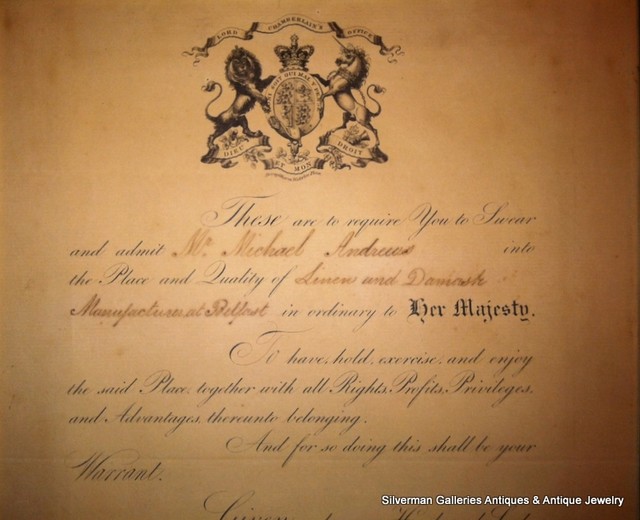 LORD CHAMBERLAIN'S OFFICE
DIEU ET MON DROIT
These are to require You to Swear
and admit Mr. Michael Andrews into
the Place and Quality of Linen and Damask
Manufacturer at Belfast in ordinary to Her Majesty.
To have, hold, exercise, and enjoy
the said Place, together with all Rights, Profits, Privileges,
and Advantages, thereunto belonging.
And for so doing this shall be your
Warrant.
Given
Silverman Galleries Antiques & Antique Jewelry